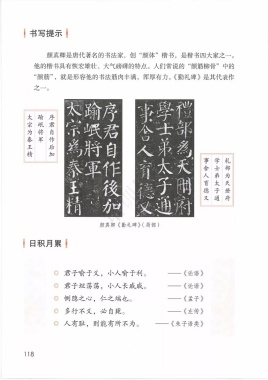 书写提示
颜真卿是唐代著名的书法家，创“颜体”楷书，是楷书四大家之一。
他的楷书具有恢宏雄壮、大气磅礴的特点。人们常说的“颜筋柳骨”中的
“颜筋”，就是形容他的书法筋肉丰满，浑厚有力。《勤礼碑》是其代表作
之一。
禮部為天冊府
學士弟太子通
事舍人育德又
序君自作後加
踰岷將軍
太宗為秦王精
礼部为天册府
学士弟太子通
事舍人育德又
序君自作后加
踰岷将军
太宗为秦王精
颜真卿《勤礼碑》（局部）
日积月累
君子喻于义，小人喻于利。 ——《论语》
君子坦荡荡，小人长戚戚。 ——《论语》
恻隐之心，仁之端也。 ——《孟子》
多行不义，必自毙。 ——《左传》
人有耻，则能有所不为。 ——《朱子语类》
118